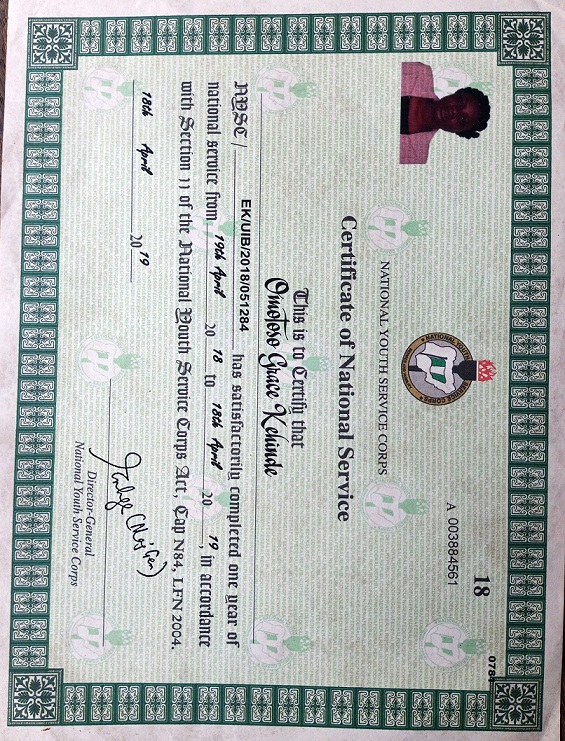 18
A 003884561
NATIONAL YOUTH SERVICE CORPS
Certificate of National Service
This is to Certify that
Omotoso Grace Kehinde
NYSC / EK/UIB/2018/051284 has satisfactorily completed one year of
national service from 19th April 20 18 to 18th April 20 19, in accordance
with Section 11 of the National Youth Service Corps Act, Cap N84, LFN 2004.
18th April 20 19
Director-General
National Youth Service Corps